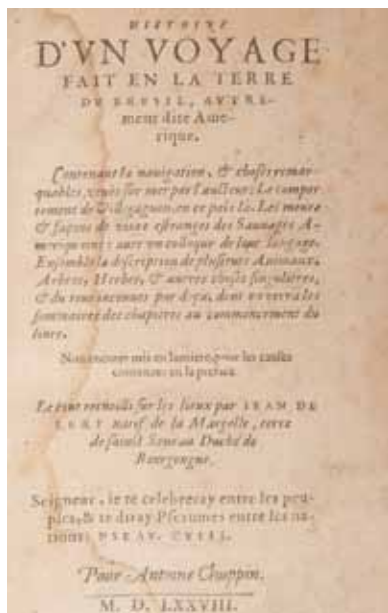 HISTOIRE
D'VN VOYAGE
FAIT EN LA TERRE
DV BRESIL, AVTRE-
ment dite Ame-
rique.
Contenant la nauigation, & choses remar-
quables, veues sur mer par l'aucteur: Le compor
tement de Villegagnon, en ce païs la. Les meurs
& façons de viure estranges des Sauuages A-
meriquains: auec vn colloque de leur langage.
Ensemble la description de plusieurs Animaux,
Arbres, Herbes, & autres choses singulieres,
& du tout inconues par deça, dont on verra les
sommaires des chapitres au commencement du
liure.
Non encores mis en lumiere, pour les causes
contenues en la preface.
Le tout recueilli sur les lieux par IEAN DE
LERY natif de la Margelle, terre
de sainct Sene au Duché de
Bourgongne.
Seigneur, ie te celebreray entre les peu-
ples, & te diray Pseaumes entre les na-
tions. PSEAV. CVIII.
Pour Antoine Chuppin.
M. D. LXXVIII.